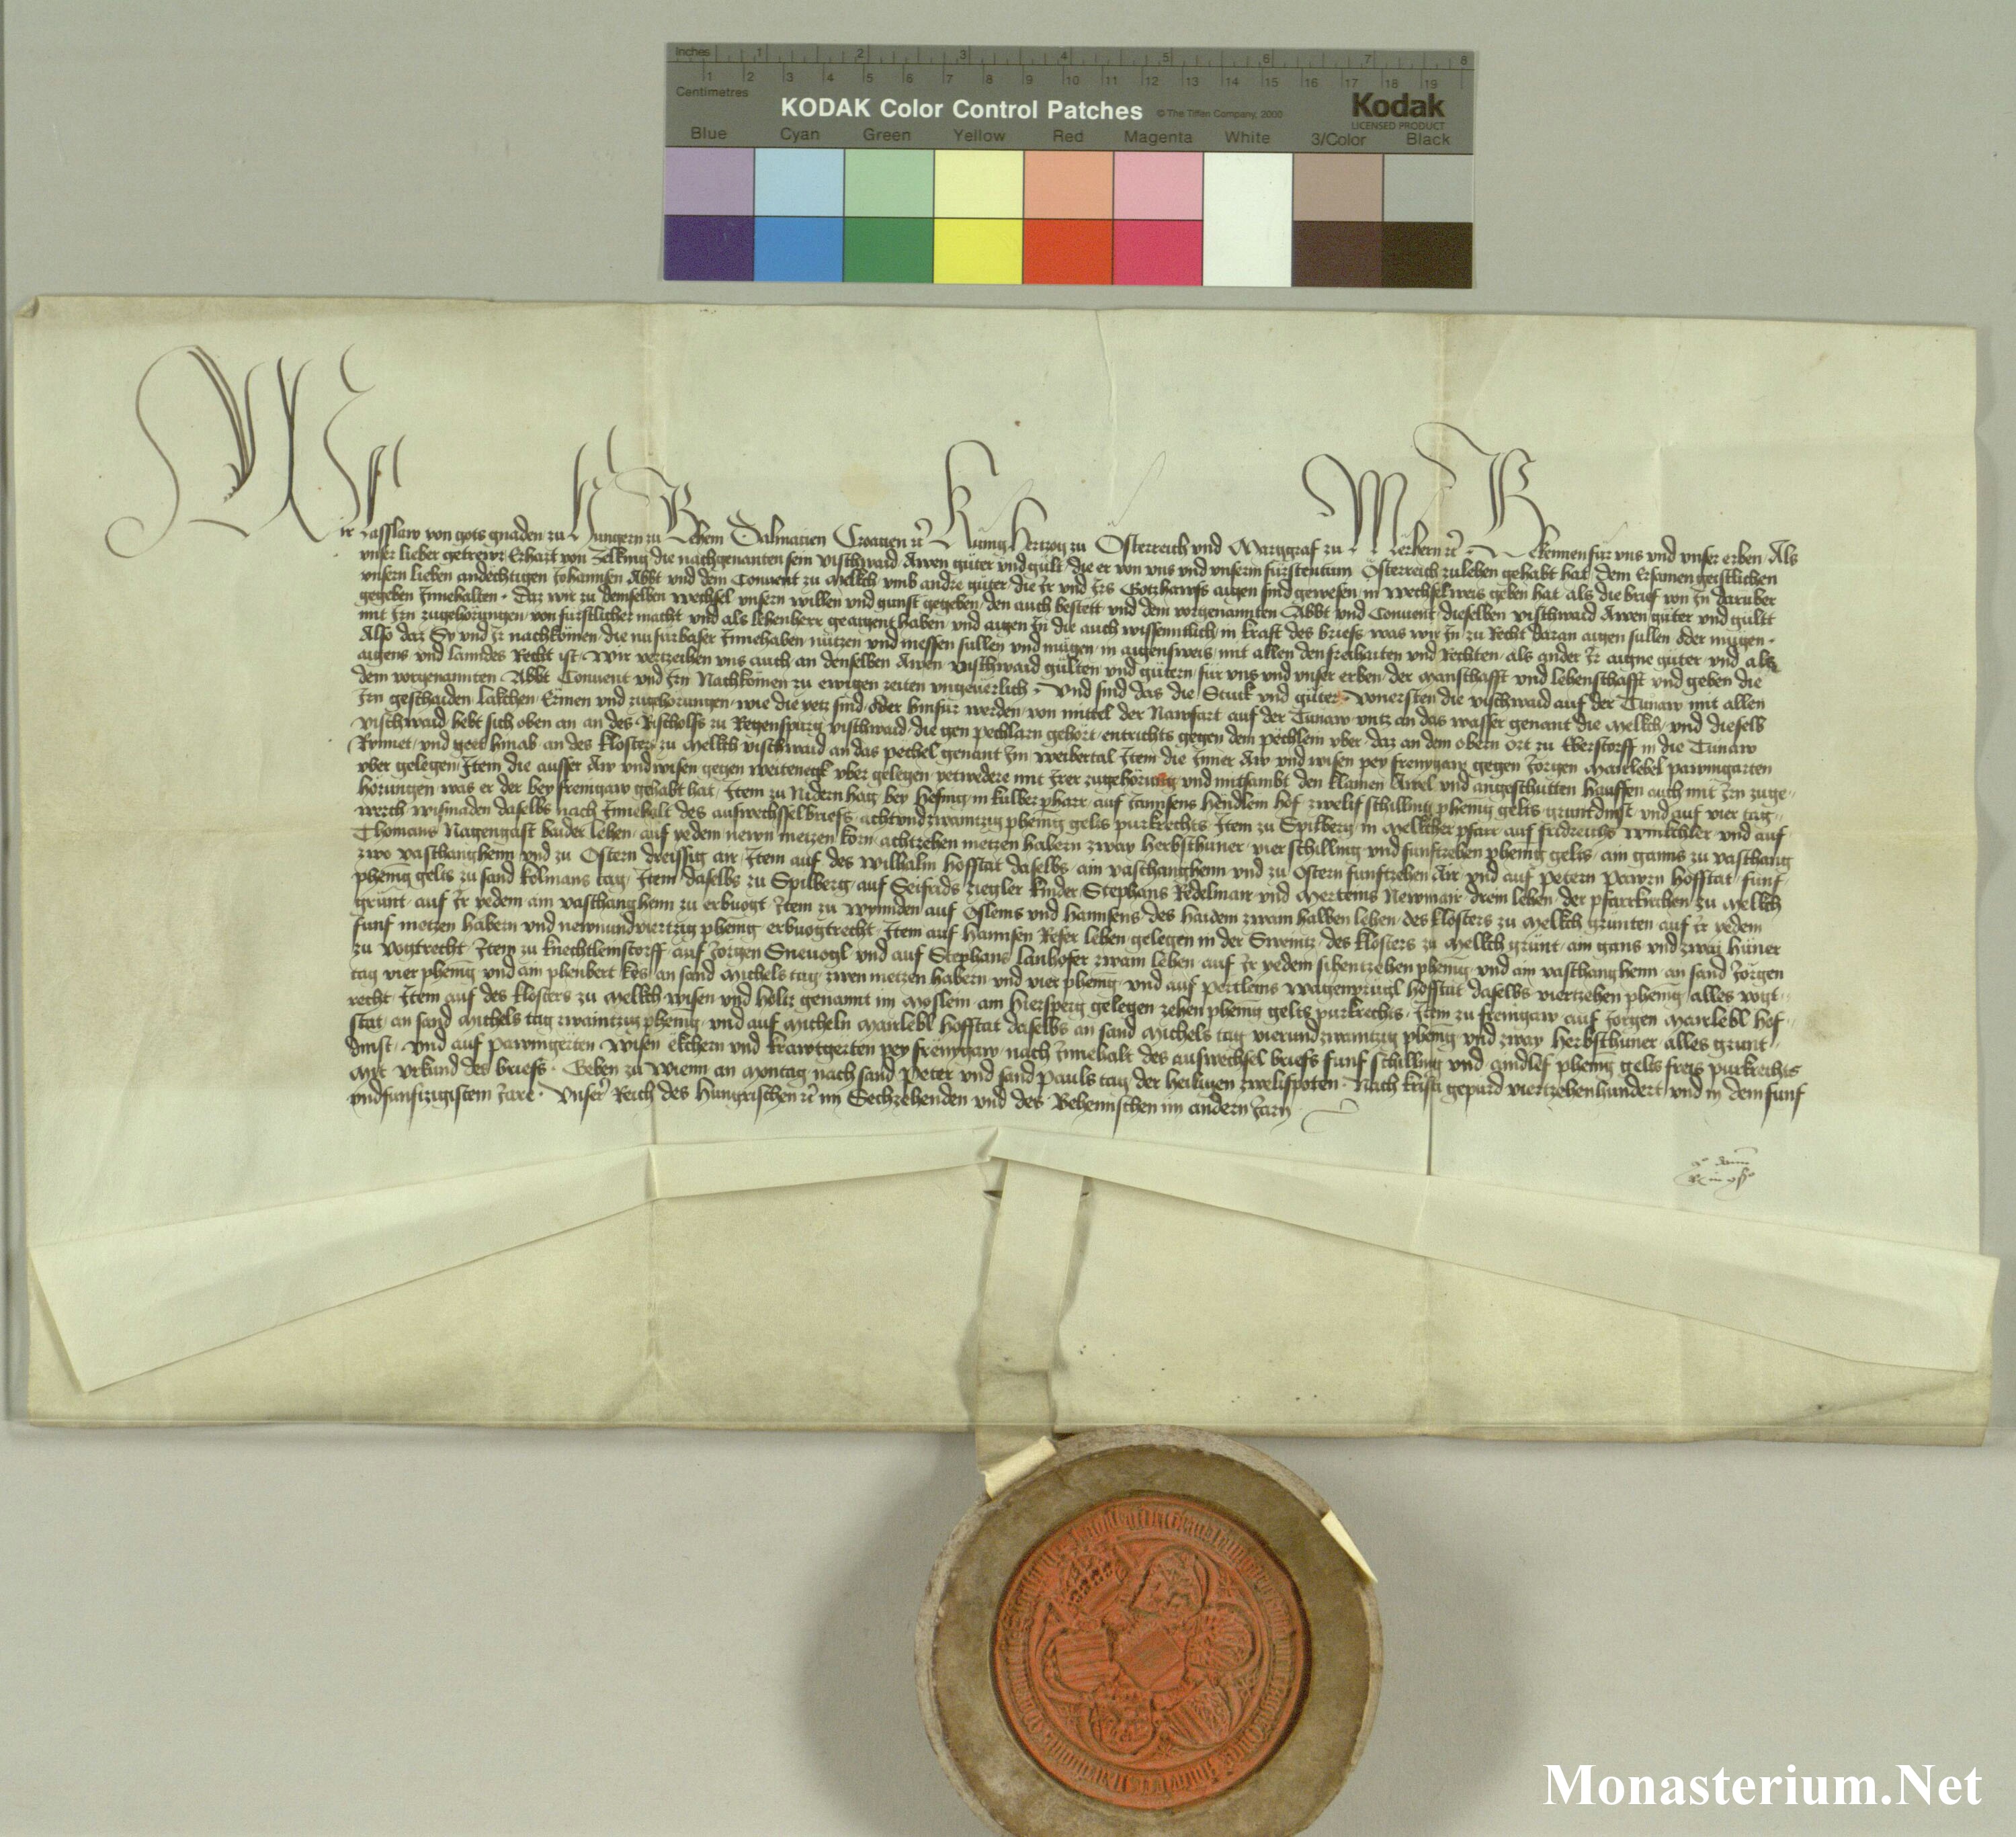 Inches 1 2 3 4 5 6 7 8
1 2 3 4 5 6 7 8 9 10 11 12 13 14 15 16 17 18 19
Centimetres
KODAK Color Control Patches © The Tiffen Company, 2000 Kodak
LICENSED PRODUCT
Blue Cyan Green Yellow Red Magenta White 3/Color Black
Wir Lasslaw von gots gnaden zu Hungern zu Behem Dalmatien Croatien rc Kunig Hertzog zu Österreich vnd Marggraf zu Merhern rc Bekennen für vns vnd vnser erben Als
vnser lieber getrewr Erhart von Zelking die nachgenanten sein vischwaid Awen güter vnd gült die er von vns vnd vnserm fürstentum Österreich zulehen gehabt hat dem Ersamen geistlichen
vnsern lieben andechtigen Johannsen Abbt vnd dem Conuent zu Melkch vmb andre güter die Ir vnd Irs Gotzhawss aigen sind gewesen in wechselweis geben hat als die brief von In daruber
gegeben Innehalten Daz wir zu demselben wechsel vnsern willen vnd gunst gegeben den auch bestett vnd dem vorgenannten Abbt vnd Conuent dieselben vischwaid Awen güter vnd gültt
mit Irn zugehörungen von fürstlicher macht vnd als lehenherr geaigent haben vnd aigen In die auch wissenntlich in kraft des briefs was wir In zu Recht daran aigen sullen oder mügen
Also daz Sy vnd Ir nachkomen die nu fürbaser Innehaben nützen vnd niessen sullen vnd mügen in aigensweis mit allen den freihaiten vnd Rechten als ander Ir aigne güter vnd als
aigens vnd lanndes Recht ist Wir verzeihen vns auch an denselben Awen vischwaid gülten vnd gütern für vns vnd vnser erben der manschafft vnd lehenschafft vnd geben die
dem vorgenannten Abbt Conuent vnd Irn Nachkomen zu ewigen zeiten vngeuerlich Vnd sind das die Stuk vnd güter Vonersten die vischwaid auf der Tunaw mit allen
Irn geschaiden lakchen Erinen vnd zugehörungen wie die yetz sind oder hinfür werden von mittel der Nawfart auf der Tunaw vntz an das wasser genant die Melkch vnd dieselb
vischwaid hebt sich oben an an des Bischolfs zu Regenspurg vischwaid die gen pechlarn gehört entrichts gegen dem pechlein vber daz an dem obern ort zu Eberstorff in die Tunaw
Rynnet vnd geet hinab an des klosters zu Melkch vischwaid an das pechel genant Im weibertal Item die Inner Aw vnd wisen pey frenygaw gegen Jorgen Marlebel pawmgarten
vber gelegen Item die ausser Aw vnd wisen gegen weitenegk vber gelegen yetwedere mit Irer zugehörung vnd mitsambt den klainen Awel vnd angeschutten hauffen auch mit Irn zuge
hörungen was er der bey frenigaw gehabt hat Item zu Nidern hag bey hesing in külber pharr auf Jannsens hendlem hof zwelif schilling phenig gelts gruntdinst vnd auf vier tag
werch wismaden daselbs nach Innehalt des auswechsselbriefs achtvndzwaintzig phenig gelts purkrechts Item zu Spilberg in Melkcher pfarr auf fridreichs winkchler vnd auf
Thomans Nagengast baider lehen auf yedem newn metzen korn achtzehen metzen habern zway herbsthuner vier schilling vnd funftzehen phenig gelts ain ganns zu vaschang
zwo vaschanghenn vnd zu Ostern dreissig air Item auf des wilhalm hofstat daselbs ain vaschanghenn vnd zu Ostern funftzehen Air vnd auf petern pawrn hofstat funf
phenig gelts zu sand kolmans tag Item daselbs zu Spilberg auf Seifrids ziegler kinder Stephans Redelmair vnd Mertenns Newmair drein lehen der pfarrkirchen zu Melkch
grünt auf Ir yedem ain vaschanghenn zu erbuogt Item zu wynnden auf Oslems vnd hannsens des haidem zwain halben lehen des klosters zu Melkch grünten auf Ir yedem
funf metzen habern vnd newnundviertzig phenig erbuogtrecht Item auf hannsen Reser lehen gelegen in der Sweinitz des klosters zu Melkch grünt ain gans vnd zway hüner
zu vogtrecht Item zu knechtleinstorff auf Jorgen Sneuogl vnd auf Stephans lanhofer zwain lehen auf Ir yedem sibentzehen phenig vnd ain vaschanghenn an sand Jorgen
tag vier phenig vnd ain phenbert kes an sand Michels tag zwen metzen habern vnd vier phenig vnd auf pertleins wagenprügl hofstat daselbs viertzehen phenig alles vogt
recht Item auf des klosters zu Melkch wisen vnd holtz genannt im Moslein am hiersperg gelegen zehen phenig gelts purkrechts Item zu frenigaw auf Jorgen Marlebl hof
stat an sand Michels tag zwaintzig phenig vnd auf Micheln Marlebl hofstat daselbs an sand Michels tag vierundzwaintzig phenig vnd zway herbsthuner alles grunt
dinst Vnd auf pawmgerten wisen ekchern vnd krawtgerten pey frenygaw nach Innehalt des auswechsel briefs funf schilling vnd aindlef phenig gelts freis purkrechts
Mit Vrkund des briefs Geben zu Wienn an Montag nach sand Peter vnd sand Pauls tag der heiligen zwelfpoten Nach kristi gepurd viertzehenhundert vnd in dem funf
vndfunfzigistem Jare Vnser Reich des hungrischen rc im Sechzehenden vnd des Behemischen im andern Jarn
Monasterium.Net